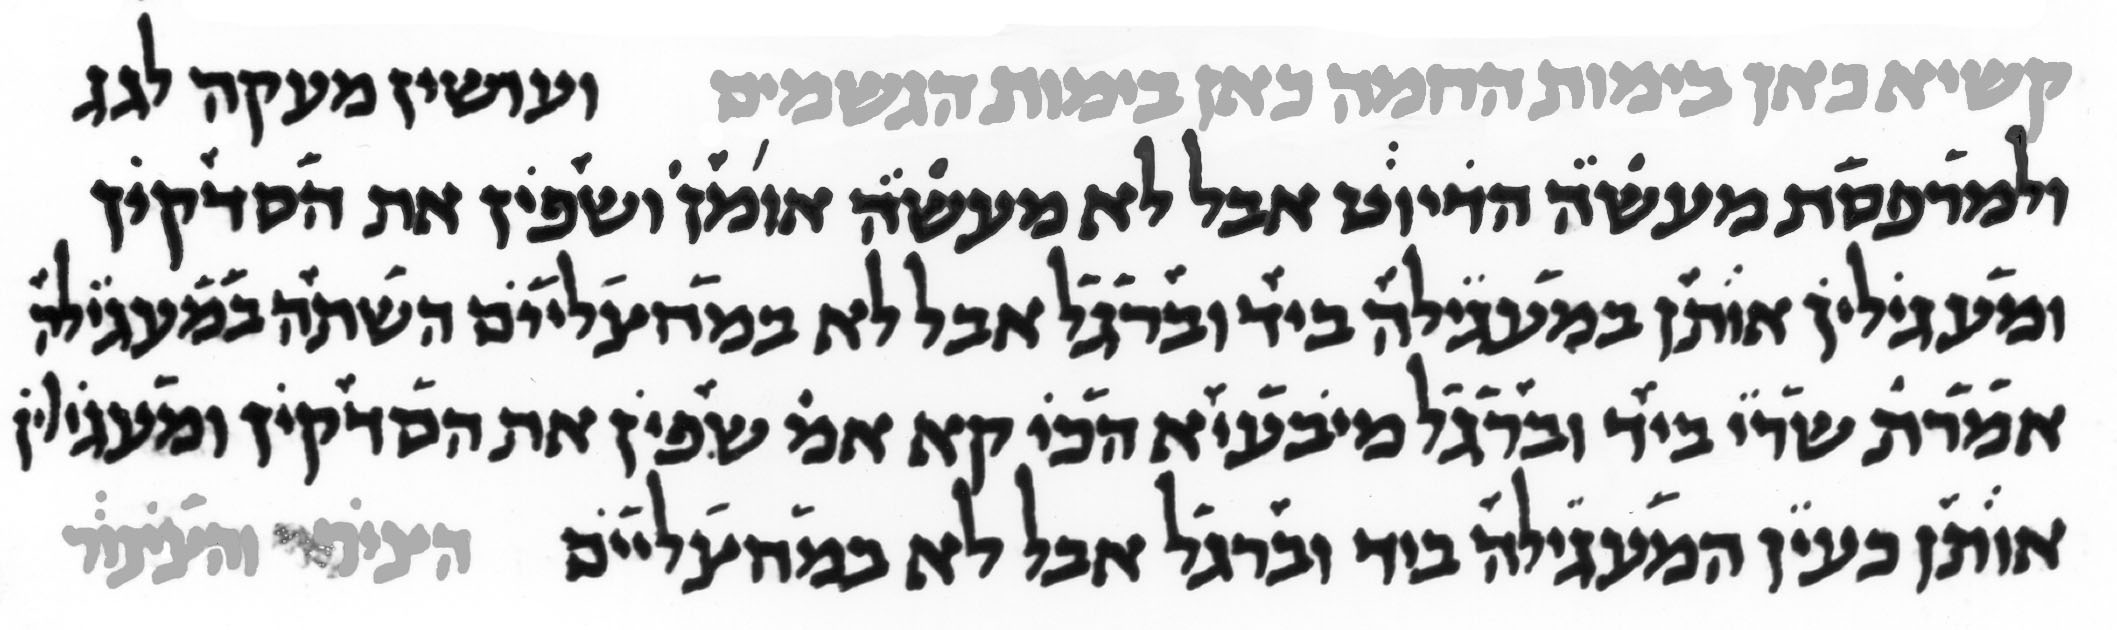 קשיא כאן בימות החמה כאן בימות הגשמים ועושין מעקה לגג
ולמרפסת מעשה הדיוט אבל לא מעשה אומן ושפין את הסדקין
ומעגילין אותן במעגילה ביד וברגל אבל לא במחצליים השתה במעגילה
אמרת שרי ביד וברגל מיבעיא הכי קא אמ שפין את הסדקין ומעגילין
אותן כעין המעגילה ביד וברגל אבל לא במחצליים הציר והצינור